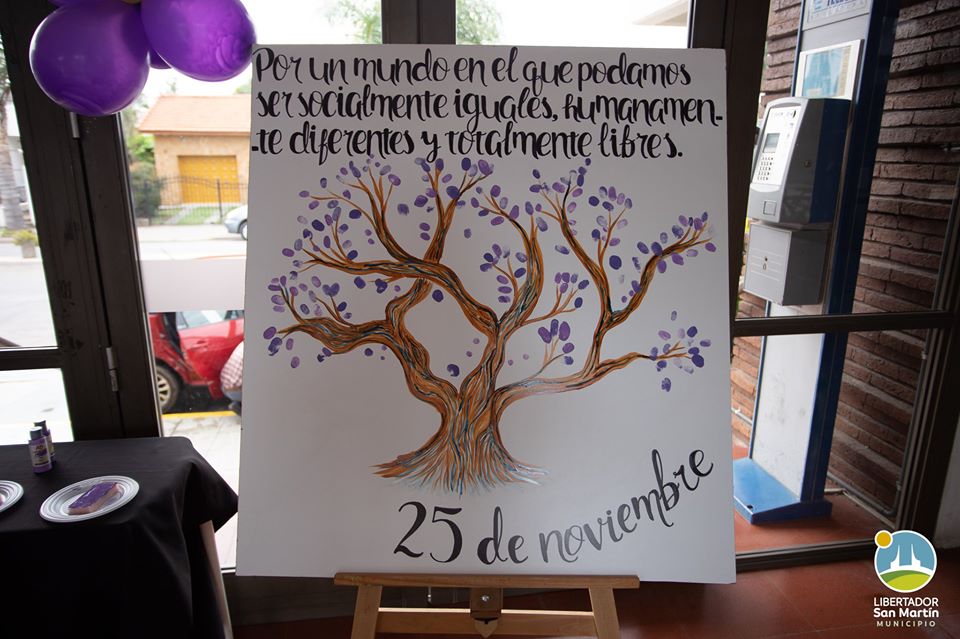 Por un mundo en el que podamos
ser socialmente iguales, humanamen-
-te diferentes y totalmente libres.
25 de noviembre
LIBERTADOR
San Martín
MUNICIPIO